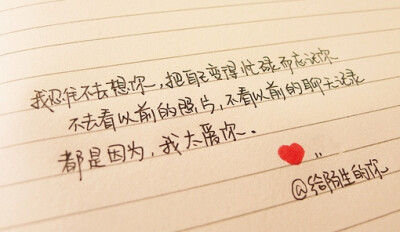 我忍住不去想你,把自己变得忙碌而忘记你
不去看以前的照片,不看以前的聊天记录
都是因为,我太爱你.
@给陌生的你